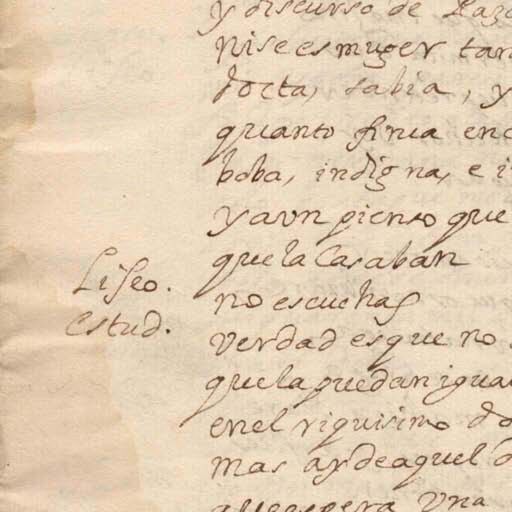 y discurso de Raz
nise es muger tan
docta, sabia, y
quanto finea en
boba, indigna, e i
y aun pienso que
que la Casaban
Liseo. no escuchas
estud. verdad es que no
que la puedan igua
en el riquisimo do
mas ay de aquel
que espera una